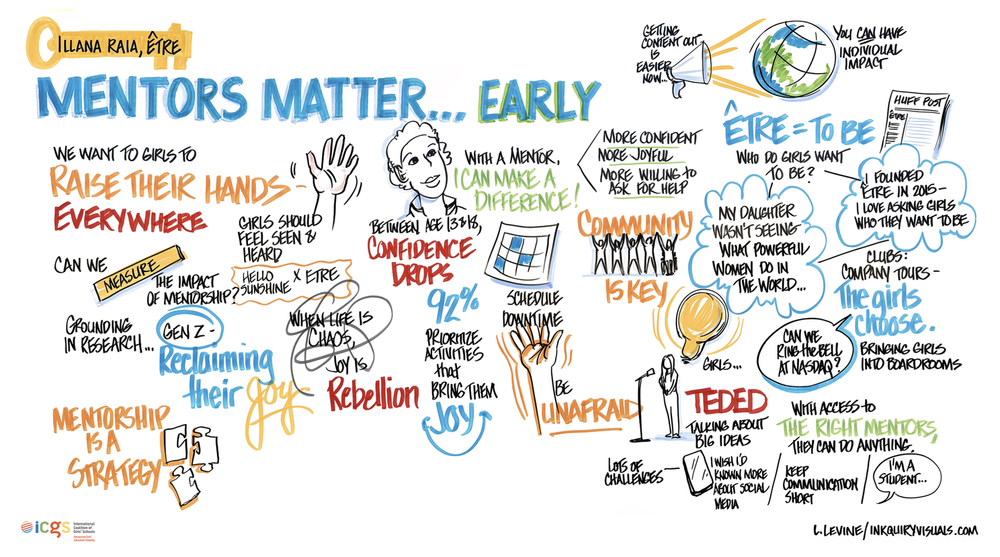 ILLANA RAIA, ÊTRE
MENTORS MATTER... EARLY
WE WANT TO GIRLS TO
RAISE THEIR HANDS-
EVERYWHERE
GIRLS SHOULD
FEEL SEEN &
HEARD
CAN WE
MEASURE
THE IMPACT
OF MENTORSHIP?
HELLO
SUNSHINE X ETRE
GROUNDING
IN RESEARCH...
GEN Z-
Reclaiming
their joy
WHEN LIFE IS
CHAOS,
JOY IS
Rebellion
MENTORSHIP
IS A
STRATEGY
WITH A MENTOR,
I CAN MAKE A
DIFFERENCE!
MORE CONFIDENT
MORE JOYFUL
MORE WILLING TO
ASK FOR HELP
BETWEEN AGE 13-18,
CONFIDENCE
DROPS
92%
PRIORITIZE
ACTIVITIES
that
BRING THEM
JOY
SCHEDULE
DOWNTIME
BE
UNAFRAID
COMMUNITY
IS KEY
GETTING
CONTENT OUT
IS
EASIER
NOW...
YOU CAN HAVE
INDIVIDUAL
IMPACT
HUFF POST
ETRE
ÊTRE = TO BE
WHO DO GIRLS WANT
TO BE?
I FOUNDED
ÊTRE IN 2015-
I LOVE ASKING GIRLS
WHO THEY WANT TO BE
MY DAUGHTER
WASN'T SEEING
WHAT POWERFUL
WOMEN DO IN
THE WORLD...
CLUBS:
COMPANY TOURS-
The girls
choose.
BRINGING GIRLS
INTO BOARDROOMS
CAN WE
RING THE BELL
AT NASDAQ?
GIRLS...
TEDED
TALKING ABOUT
BIG IDEAS
WITH ACCESS to
THE RIGHT MENTORS,
THEY CAN DO ANYTHING.
LOTS OF
CHALLENGES
I WISH I'D
KNOWN MORE
ABOUT SOCIAL
MEDIA
KEEP
COMMUNICATION
SHORT
I'M A
STUDENT...
icgs
International
Coalition of
Girls' Schools
L.LEVINE/INKQUIRYVISUALS.COM